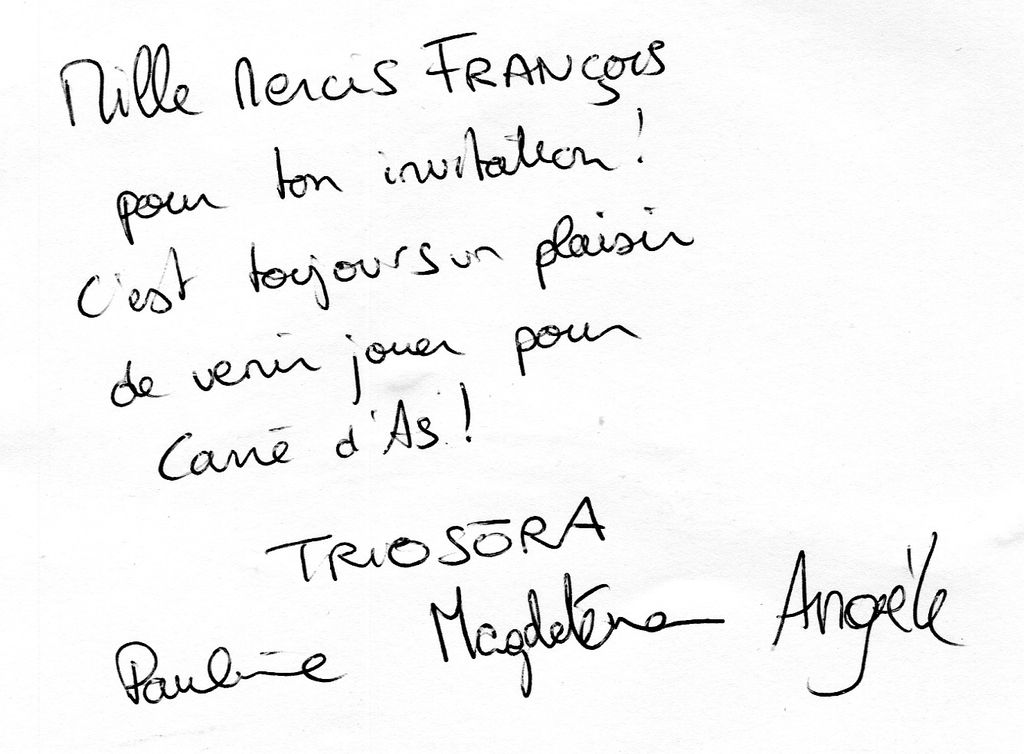 Mille Mercis FRANÇOIS
pour ton invitation !
C'est toujours un plaisir
de venir jouer pour
Carré d'As !
TRIO SŌRA
Pauline Magdalena Angèle